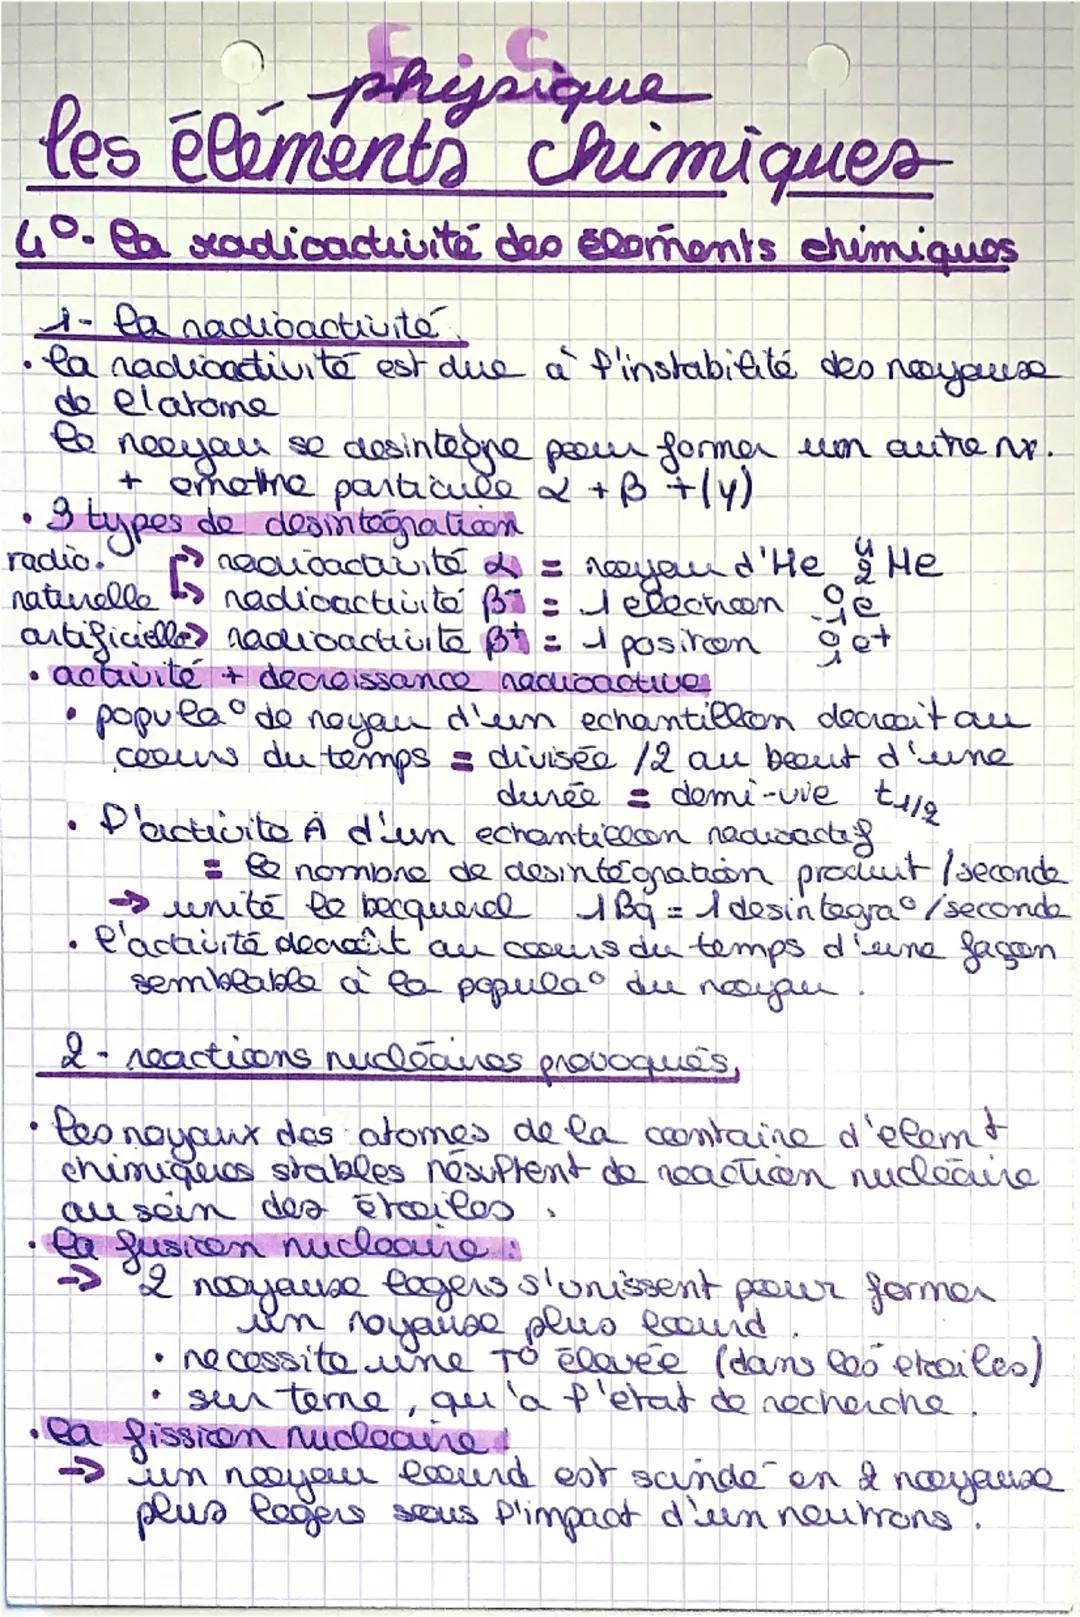 E.S.
physique
les éléments chimiques
4°- la radioactivité des éléments chimiques
1- la radioactivité.
• la radioactivité est due à l'instabilité des noyause
de l'atome
le noyau se desintègre pour former un autre nx.
+ emettre particule α + β + (γ)
• 3 types de desintégration
radio. → radioactivité α = noyau d'He ⁴₂He
naturelle → radioactivité β⁻ = 1 electron ⁰₋₁e
artificielle → radioactivité β⁺ = 1 positron ⁰₁e+
• activité + decroissance radioactive
• popula° de noyau d'un echantillon decroit au
cours du temps = divisée /2 au bout d'une
durée = demi-vie t1/2
• l'activité A d'un echantillon radioactif
= le nombre de desintégration produit /seconde
→ unité le becquerel 1Bq = 1 desintegra° /seconde
• l'activité decroît au cours du temps d'une façon
semblable à la popula° du noyau.
2- reactions nucléaires provoqués,
• les noyaux des atomes de la centaine d'elemt
chimiques stables résultent de reaction nucléaire
au sein des étoiles.
• la fusion nucleaire :
→ 2 noyause legers s'unissent pour former
un noyause plus lourd.
• necessite une T° élevée (dans les etoiles)
• sur terre, qu'a l'état de recherche.
• la fission nucleaire :
→ un noyau lourd est scindé en 2 noyause
plus legers sous l'impact d'un neutrons.